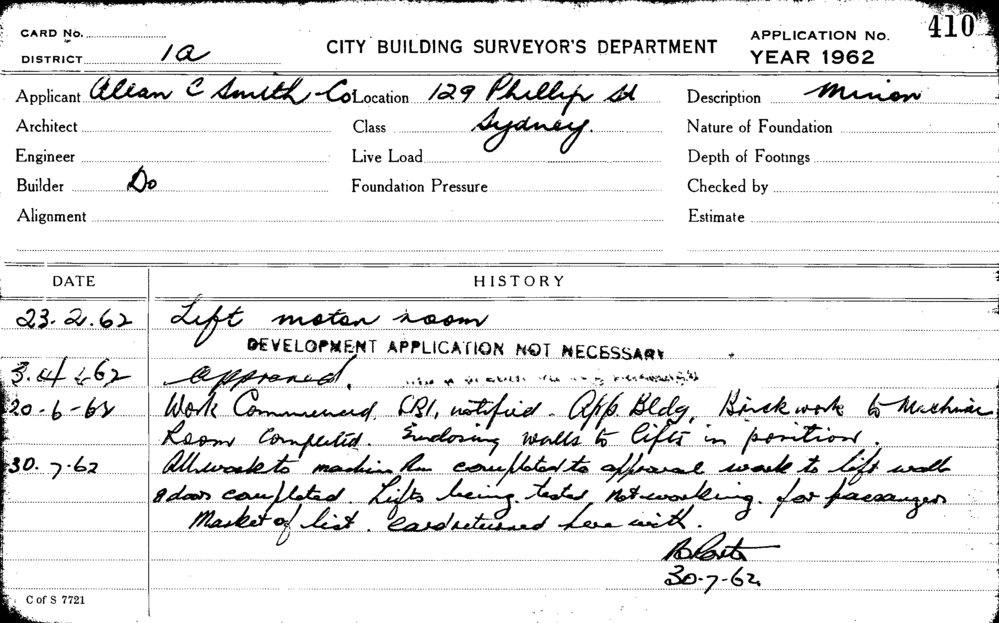 410
CARD No.
DISTRICT 1a
CITY BUILDING SURVEYOR'S DEPARTMENT
APPLICATION No.
YEAR 1962
Applicant Allan C Smith Co Location 129 Phillip St Description Minion
Architect Class Sydney. Nature of Foundation
Engineer Live Load Depth of Footings
Builder Do Foundation Pressure Checked by
Alignment Estimate
DATE HISTORY
23.2.62 Lift motor room
DEVELOPMENT APPLICATION NOT NECESSARY
3.4.62 Approved.
20-6-62 Work Commenced, notified. App. Bldg. Brickwork to Machine
Room Completed. Enclosing walls to lifts in position.
30.7.62 All work to machine Rm completed to approval work to lift walls
& doors completed. Lifts being tested not working for passangers
Marked of list. Card returned here with.
30-7-62
C of S 7721